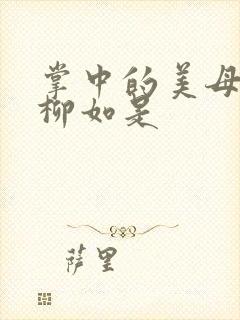 掌中的美母
柳如是
萨里